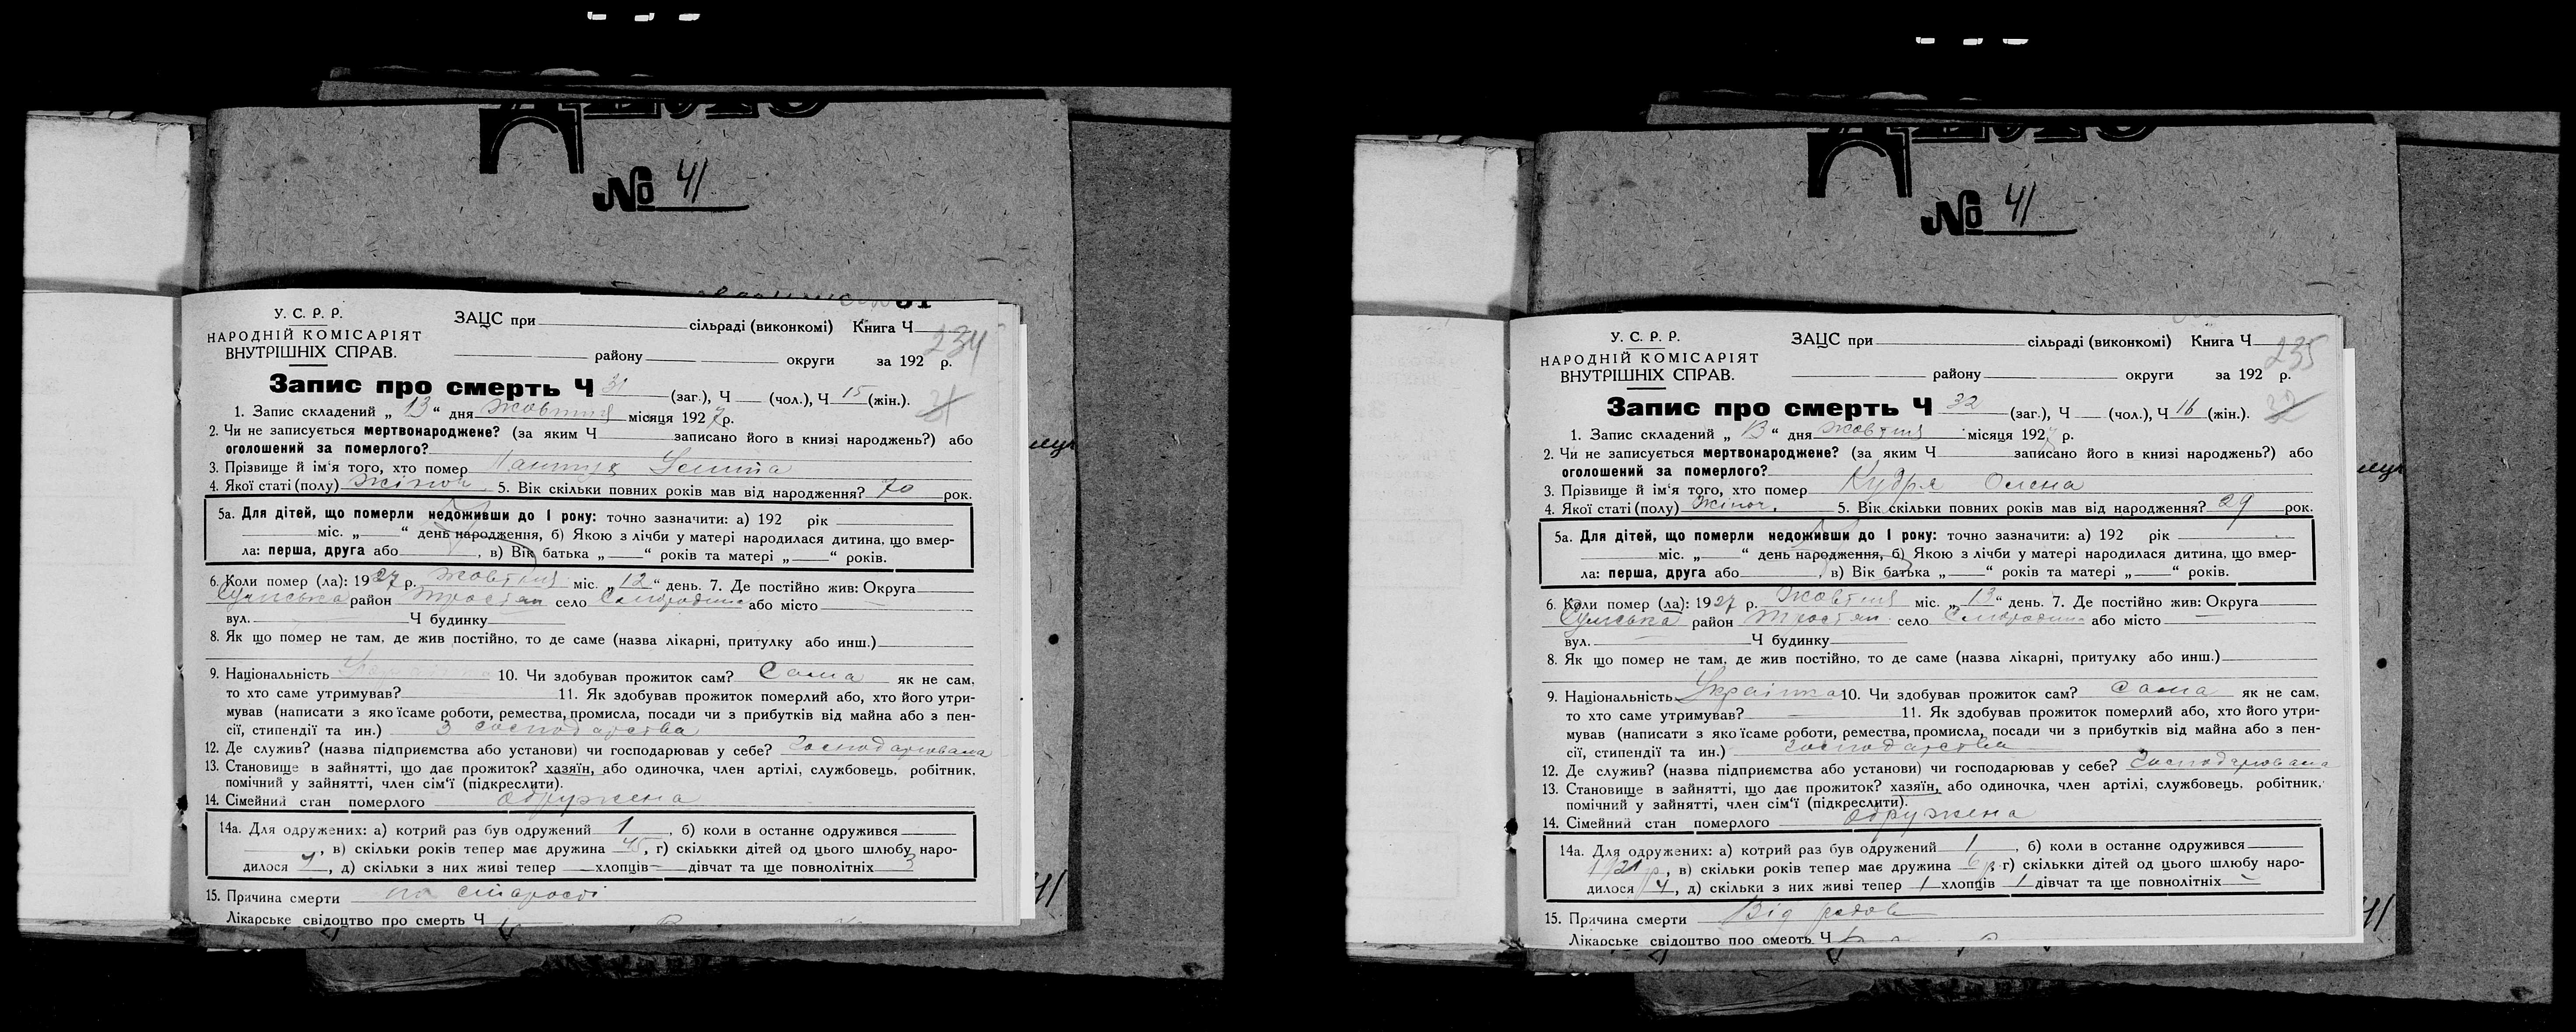 № 41
У. С. Р. Р.
НАРОДНІЙ КОМІСАРІЯТ
ВНУТРІШНІХ СПРАВ.
ЗАЦС при сільраді (виконкомі) Книга Ч
району округи за 192 р.
234
Запис про смерть Ч 31 (заг.), Ч (чол.), Ч 15 (жін.).
31
1. Запис складений „ 13 “ дня жовтня місяця 1927 р.
2. Чи не записується мертвонароджене? (за яким Ч записано його в книзі народжень?) або
оголошений за померлого?
3. Прізвище й ім‘я того, хто помер
4. Якої статі (полу) жіноч 5. Вік скільки повних років мав від народження? 70 рок.
5а. Для дітей, що померли недоживши до 1 року: точно зазначити: а) 192 рік
міс. „ “ день народження, б) Якою з лічби у матері народилася дитина, що вмер-
ла: перша, друга або , в) Вік батька „ “ років та матері „ “ років.
6. Коли помер (ла): 1927 р. жовтня міс. „ 12 “ день. 7. Де постійно жив: Округа
Сумська район Тростян село Смородине або місто
вул. Ч будинку
8. Як що помер не там, де жив постійно, то де саме (назва лікарні, притулку або инш.)
9. Національність 10. Чи здобував прожиток сам? Сама як не сам,
то хто саме утримував? 11. Як здобував прожиток померлий або, хто його утри-
мував (написати з яко їсаме роботи, ремества, промисла, посади чи з прибутків від майна або з пен-
сії, стипендії та ин.) З господарства
12. Де служив? (назва підприємства або установи) чи господарював у себе? Господарювала
13. Становище в зайнятті, що дає прожиток? хазяїн, або одиночка, член артілі, службовець, робітник,
помічний у зайнятті, член сім‘ї (підкреслити).
14. Сімейний стан померлого одружена
14а. Для одружених: а) котрий раз був одружений 1 , б) коли в останнє одружився
, в) скільки років тепер має дружина 45, г) скількки дітей од цього шлюбу наро-
дилося 7 , д) скільки з них живі тепер хлопців дівчат та ще повнолітніх 3
15. Причина смерти по старості
Лікарське свідоцтво про смерть Ч
№ 41
У. С. Р. Р.
НАРОДНІЙ КОМІСАРІЯТ
ВНУТРІШНІХ СПРАВ.
ЗАЦС при сільраді (виконкомі) Книга Ч
району округи за 192 р.
235
Запис про смерть Ч 32 (заг.), Ч (чол.), Ч 16 (жін.).
32
1. Запис складений „ 13 “ дня жовтня місяця 1927 р.
2. Чи не записується мертвонароджене? (за яким Ч записано його в книзі народжень?) або
оголошений за померлого?
3. Прізвище й ім‘я того, хто помер Кудря Олена
4. Якої статі (полу) Жіноч. 5. Вік скільки повних років мав від народження? 29 рок.
5а. Для дітей, що померли недоживши до 1 року: точно зазначити: а) 192 рік
міс. „ “ день народження, б) Якою з лічби у матері народилася дитина, що вмер-
ла: перша, друга або , в) Вік батька „ “ років та матері „ “ років.
6. Коли помер (ла): 1927 р. Жовтня міс. „ 13 “ день. 7. Де постійно жив: Округа
Сумська район Тростян село Смородине або місто
вул. Ч будинку
8. Як що помер не там, де жив постійно, то де саме (назва лікарні, притулку або инш.)
9. Національність Українка 10. Чи здобував прожиток сам? Сама як не сам,
то хто саме утримував? 11. Як здобував прожиток померлий або, хто його утри-
мував (написати з яко їсаме роботи, ремества, промисла, посади чи з прибутків від майна або з пен-
сії, стипендії та ин.) господарства
12. Де служив? (назва підприємства або установи) чи господарював у себе? Господарювала
13. Становище в зайнятті, що дає прожиток? хазяїн, або одиночка, член артілі, службовець, робітник,
помічний у зайнятті, член сім‘ї (підкреслити).
14. Сімейний стан померлого Одружена
14а. Для одружених: а) котрий раз був одружений 1 , б) коли в останнє одружився
1921 р., в) скільки років тепер має дружина 6 р. г) скількки дітей од цього шлюбу наро-
дилося 4 , д) скільки з них живі тепер 1 хлопців 1 дівчат та ще повнолітніх
15. Причина смерти Від родов
Лікарське свідоцтво про смерть Ч